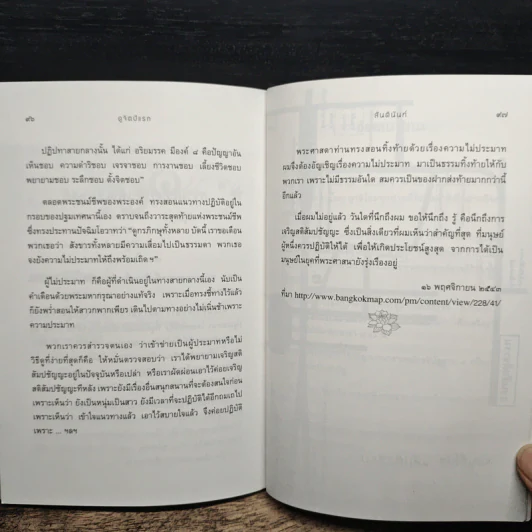 ๙๖
ดูจิตปีแรก
ปฏิปทาสายกลางนั้น ได้แก่ อริยมรรค มีองค์ ๘ คือปัญญาอัน
เห็นชอบ ความดำริชอบ เจรจาชอบ การงานชอบ เลี้ยงชีวิตชอบ
พยายามชอบ ระลึกชอบ ตั้งจิตชอบ"
ตลอดพระชนม์ชีพของพระองค์ ทรงสอนแนวทางปฏิบัติอยู่ใน
กรอบของปฐมเทศนานี้เอง ตราบจนถึงวาระสุดท้ายแห่งพระชนม์ชีพ
ซึ่งทรงประทานปัจฉิมโอวาทว่า "ดูกรภิกษุทั้งหลาย บัดนี้ เราขอเตือน
พวกเธอว่า สังขารทั้งหลายมีความเสื่อมไปเป็นธรรมดา พวกเธอ
จงยังความไม่ประมาทให้ถึงพร้อมเถิด ฯ"
ผู้ไม่ประมาท ก็คือผู้ที่ดำเนินอยู่ในทางสายกลางนี้เอง นับเป็น
คำเตือนด้วยพระมหากรุณาอย่างแท้จริง เพราะเมื่อทรงชี้ทางไว้แล้ว
ก็ยังพร่ำสอนให้สาวกพากเพียร เดินไปตามทางอย่างไม่เนิ่นช้าเพราะ
ความประมาท
พวกเราควรสำรวจตนเอง ว่าเข้าข่ายเป็นผู้ประมาทหรือไม่
วิธีดูที่ง่ายที่สุดก็คือ ให้หมั่นตรวจสอบว่า เราได้พยายามเจริญสติ
สัมปชัญญะอยู่ในปัจจุบันหรือเปล่า หรือเราผัดผ่อนเอาไว้ค่อยเจริญ
สติสัมปชัญญะทีหลัง เพราะยังมีเรื่องอื่นสนุกสนานที่จะต้องสนใจก่อน
เพราะเห็นว่า ยังเป็นหนุ่มเป็นสาว ยังมีเวลาที่จะปฏิบัติได้อีกถมเถไป
เพราะเห็นว่า เข้าใจแนวทางแล้ว เอาไว้สบายใจแล้ว จึงค่อยปฏิบัติ
เพราะ ... ฯลฯ
สันตินันท์
๙๗
พระศาสดาท่านทรงสอนทิ้งท้ายด้วยเรื่องความไม่ประมาท
ผมจึงต้องอัญเชิญเรื่องความไม่ประมาท มาเป็นธรรมทิ้งท้ายให้กับ
พวกเรา เพราะไม่มีธรรมอันใด สมควรเป็นของฝากส่งท้ายมากกว่านี้
อีกแล้ว
เมื่อผมไม่อยู่แล้ว วันใดที่นึกถึงผม ขอให้นึกถึง รู้ คือนึกถึงการ
เจริญสติสัมปชัญญะ ซึ่งเป็นสิ่งเดียวที่ผมเห็นว่าสำคัญที่สุด ที่มนุษย์
ผู้หนึ่งควรปฏิบัติให้ได้ เพื่อให้เกิดประโยชน์สูงสุด จากการได้เป็น
มนุษย์ในยุคที่พระศาสนายังรุ่งเรืองอยู่
๑๖ พฤศจิกายน ๒๕๔๓
ที่มา http://www.bangkokmap.com/pm/content/view/228/41/